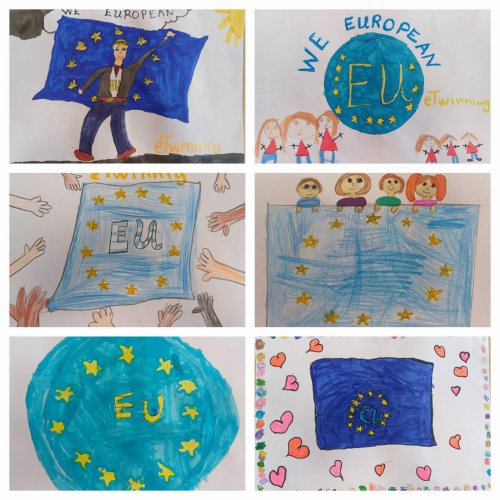 WE EUROPEAN
eTwinning
WE EUROPEAN
EU
eTwinning
eTwinning
EU
EU
EU